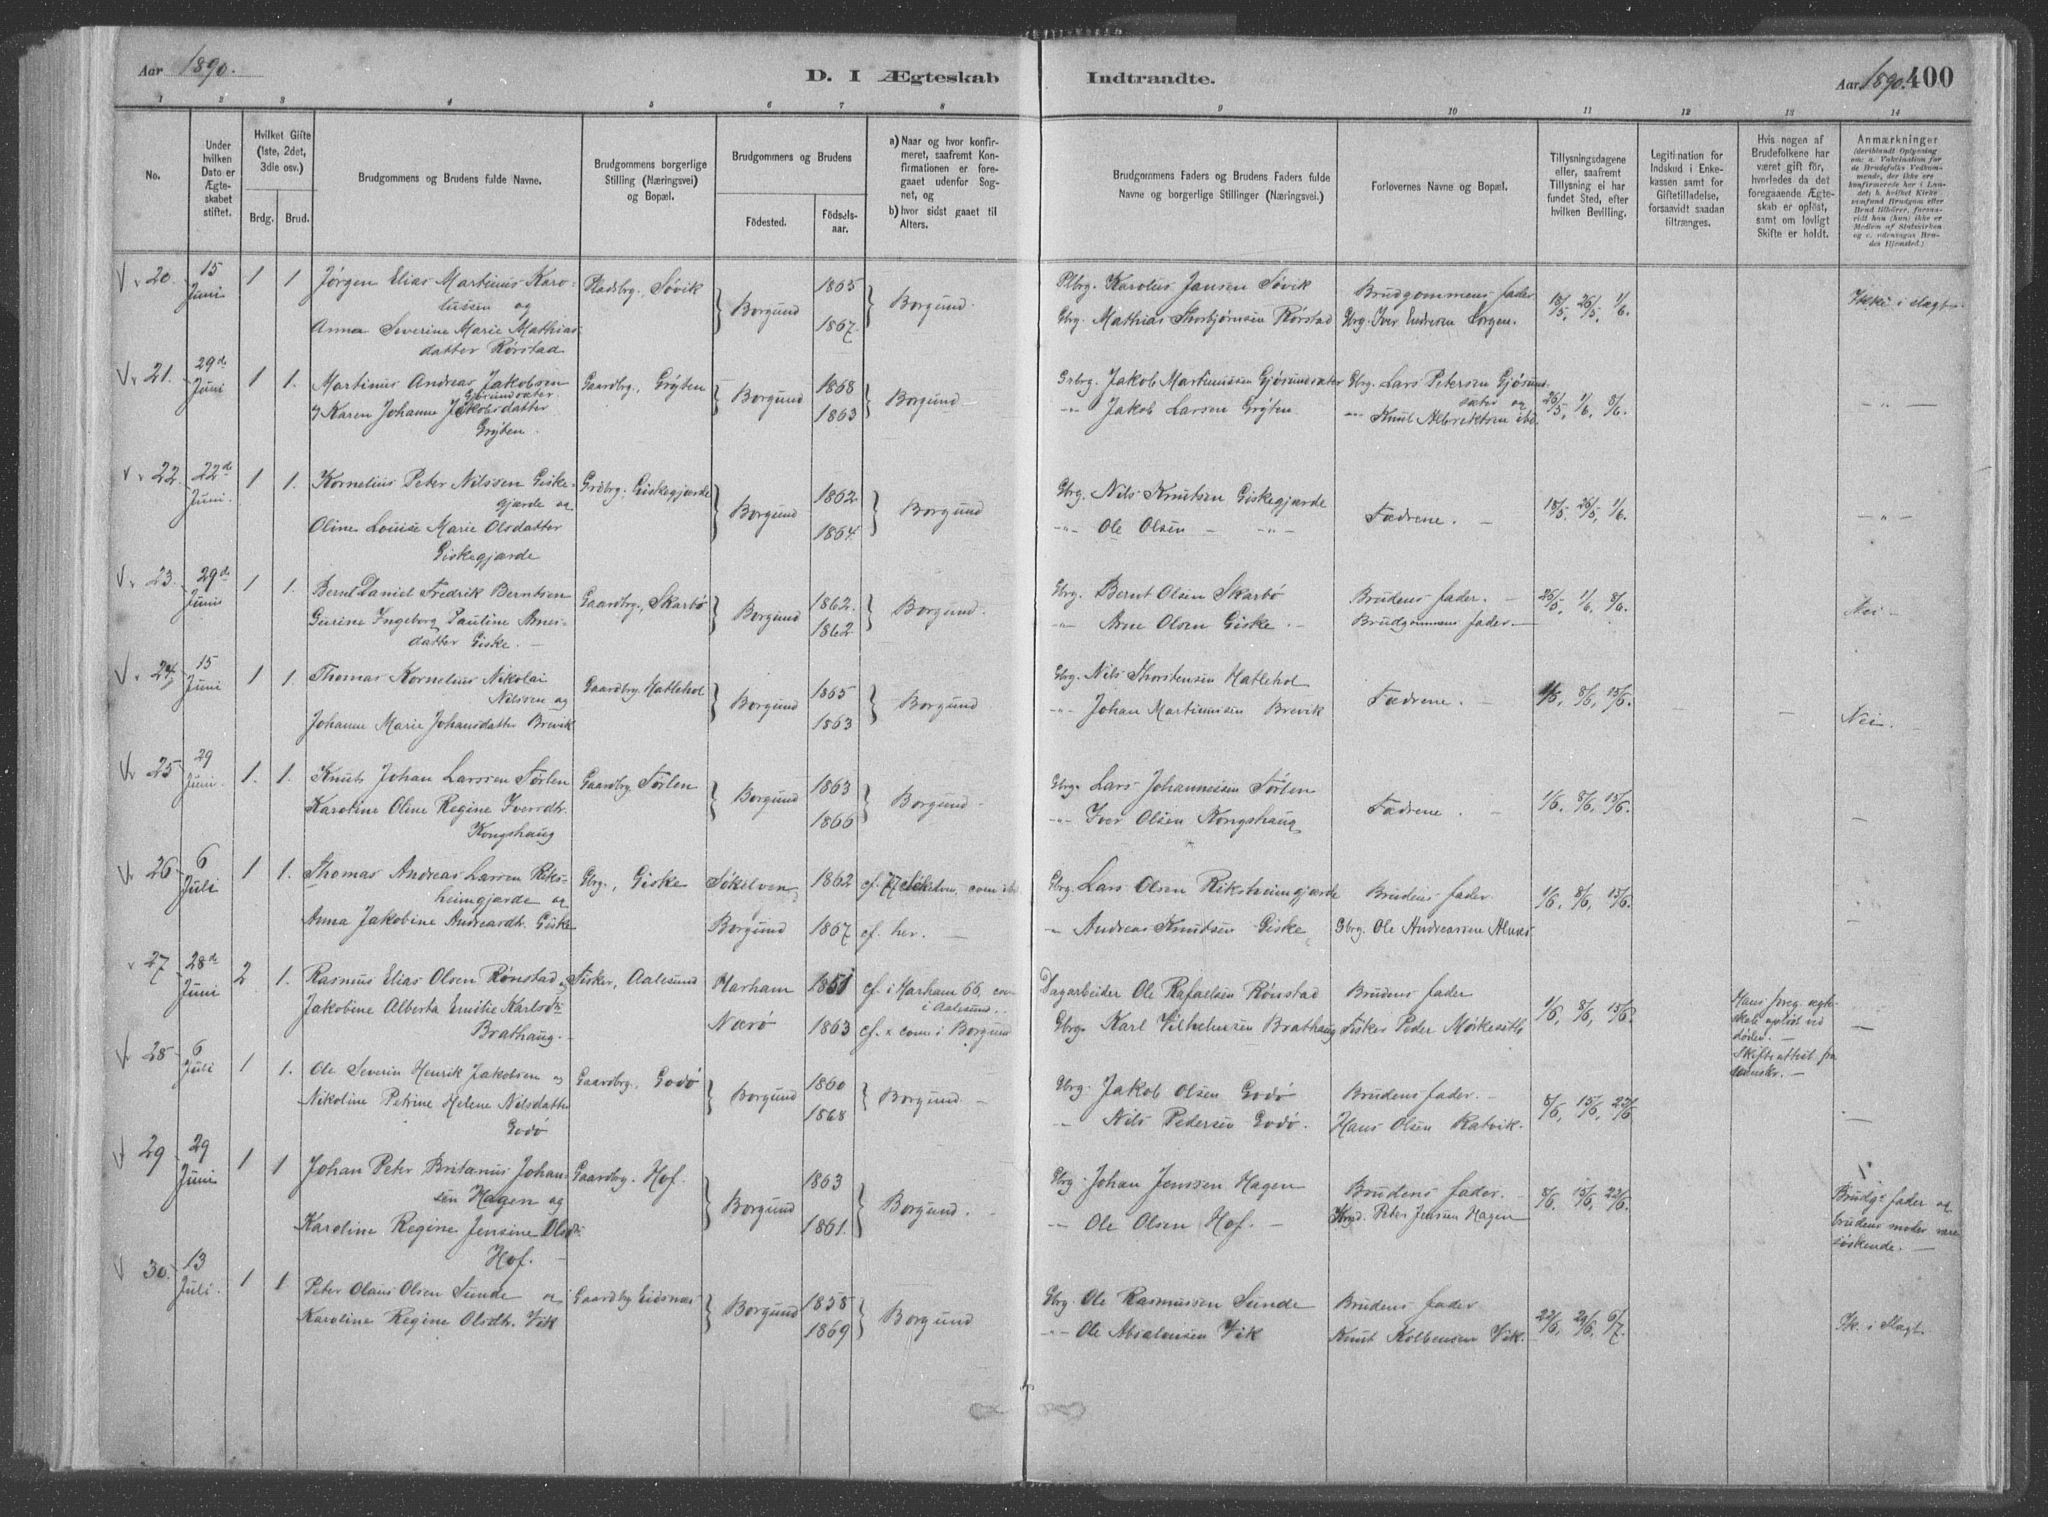 Aar 1890.
D. I Ægteskab
Indtraadte.
Aar 1890. 400
1 2 3 4 5 6 7 8 9 10 11 12 13 14
No.
Under hvilken Dato er Ægteskabet stiftet.
Hvilket Gifte (1ste, 2det, 3die osv.)
Brdg. Brud.
Brudgommens og Brudens fulde Navne.
Brudgommens borgerlige Stilling (Næringsvei) og Bopæl.
Brudgommens og Brudens
Fødested. Fødselsaar.
a) Naar og hvor konfirmeret, saafremt Konfirmationen er foregaaet udenfor Sognet, og
b) hvor sidst gaaet til Alters.
Brudgommens Faders og Brudens Faders fulde Navne og borgerlige Stillinger (Næringsvei.)
Forlovernes Navne og Bopæl.
Tillysningsdagene eller, saafremt Tillysning ei har fundet Sted, efter hvilken Bevilling.
Legitimation for Indskud i Enkekassen samt for Giftetilladelse, forsaavidt saadan tiltrænges.
Hvis nogen af Brudefolkene har været gift før, hvorledes da det foregaaende Ægteskab er opløst, samt om lovligt Skifte er holdt.
Anmærkninger
20. 15 Juni 1 1 Jørgen Elias Martinus Karolussen og Pladsbrg. Søvik Borgund 1865 Borgund. Plbrg. Karolus Jansen Søvik Brudgommens fader 18/5, 26/5, 1/6. Ikke i slagt
Anna Severine Marie Mathiasdatter Rørstad 1867. Gbrg. Mathias Thorbjørnsen Rørstad Gbrg. Iver Endresen Sorgen.
21. 29d Juni 1 1. Martinus Andreas Jakobsen Gjøsundsæter Gaardbrg., Grýten Borgund 1868 Borgund Grbrg. Jakob Martinussen Gjøsundsæter Gbrg. Lars Petersen Gjøsundsæter og 26/5, 1/6, 8/6. -"-
& Karen Johanne Jakobsdatter Grýten. 1863 -"- Jakob Larsen Grýten -"- Knut Albrektsen ibd.
22. 22d Juni. 1 1. Kornelius Peter Nilssen Giskegjærde og Grdbrg. Giskegjærde Borgund 1862. Borgund Gbrg. Nils Knutsen Giskegjærde Fædrene. 18/5, 26/5, 1/6. -"-
Oline Louise Marie Olsdatter Giskegjærde 1864. -"- Ole Olsen -"-
23. 29d Juni 1 1. Bernt Daniel Fredrik Berntsen Gaardbrg., Skarbø Borgund 1862. Borgund. Gbrg. Bernt Olsen Skarbø Brudens fader. 26/5, 1/6, 8/6. Nei
Gurine Ingeborg Pauline Arnesdatter Giske. 1862. -"- Arne Olsen Giske. Brudgommens fader.
24. 15 Juni 1 1. Thomas Kornelius Nikolai Nilssen og Gaardbrg. Hatlehol Borgund 1865 Borgund Gbrg. Nils Thorstensen Hatlehol Fædrene. 8/6, 15/6. Nei.
Johanne Marie Johansdatter Brevik 1863 -"- Johan Martinussen Brevik
25 29 Juni 1. 1. Knut Johan Larssen Førlen Gaardbrg. Førlen Borgund 1863 Borgund Gbrg. Lars Johannessen Førlen Fædrene. 1/6. 8/6, 15/6.
Karoline Oline Regine Iversdtr. Kongshaug 1866 -"- Iver Olsen Kongshaug
26 6 Juli 1 1. Thomas Andreas Larsen Riksheimgjærde og Gbrg., Giske Søkelven 1862 cf. i Søkelven, com ibd Gbrg. Lars Olsen Riksheimgjærde Brudens fader. 1/6, 8/6, 15/6.
Anna Jakobine Andreasdtr. Giske Borgund 1867 cf. her. " Andreas Knudsen Giske Gbrg. Ole Andreassen Alnes.
27 28d Juni 2 1. Rasmus Elias Olsen Rønstad og Fisker, Aalesund Harham 1851 cf. i Harham 66, com i Aalesund. Dagarbeider Ole Rafaelsen Rønstad Brudens fader 1/6, 8/6, 15/6. Hans foreg. ægteskab opløst ved døden. Skifteattest fra
Jakobine Alberta Emilie Karlsdtr Brathaug. Nærø 1863 cf. & com i Borgund Gbrg. Karl Vilhelmsen Brathaug Fisker Peder
28 6 Juli 1 1. Ole Severin Henrik Jakobsen og Gaardbrg. Godø Borgund 1860 Borgund. Gbrg. Jakob Olsen Godø Brudens fader. 8/6, 15/6, 22/6
Nikoline Petrine Helene Nilsdatter Godø 1868 " Nils Pedersen Godø. Hans Olsen Ratvik.
29 29 Juni 1 1 Johan Peter Britanus Johansen Hagen og Gaardbrg. Hof. Borgund 1863 Borgund. Gbrg. Johan Jenssen Hagen Brudens fader. 8/6, 15/6, 22/6. Brudg.s fader og brudens moder vare søskende.
Karoline Regine Jensine Olsdtr Hof. 1861. -"- Ole Olsen Hof. Peter Jensen Hagen
30. 13 Juli. 1 1. Peter Olaus Olsen Sunde og Gaardbrg Eidsnæs Borgund 1858 Borgund Gbrg. Ole Rasmussen Sunde Brudens fader 22/6, 29/6, 6/7. Ik. i Slagt.
Karoline Regine Olsdtr. Vik 1869 -"- Ole Absalonsen Vik Knut Kolbensen Vik.